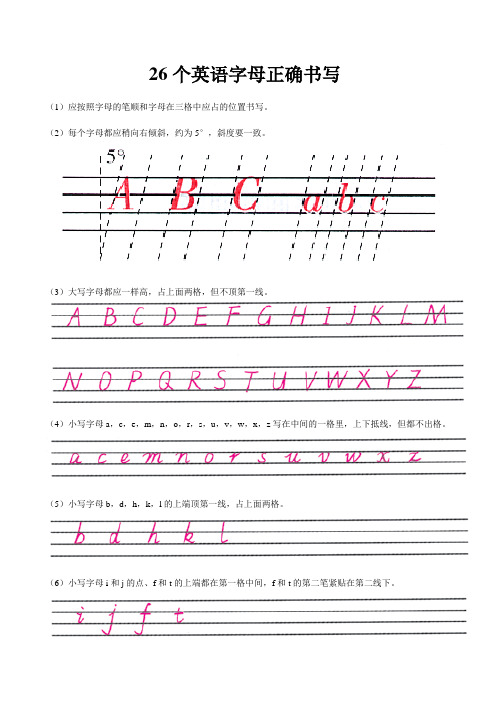 26 个英语字母正确书写
（1）应按照字母的笔顺和字母在三格中应占的位置书写。
（2）每个字母都应稍向右倾斜，约为 5°，斜度要一致。
5°
A B C a b c
（3）大写字母都应一样高，占上面两格，但不顶第一线。
A B C D E F G H I J K L M
N O P Q R S T U V W X Y Z
（4）小写字母 a，c，e，m，n，o，r，s，u，v，w，x，z 写在中间的一格里，上下抵线，但都不出格。
a c e m n o r s u v w x z
（5）小写字母 b，d，h，k，l 的上端顶第一线，占上面两格。
b d h k l
（6）小写字母 i 和 j 的点、f 和 t 的上端都在第一格中间，f 和 t 的第二笔紧贴在第二线下。
i j f t